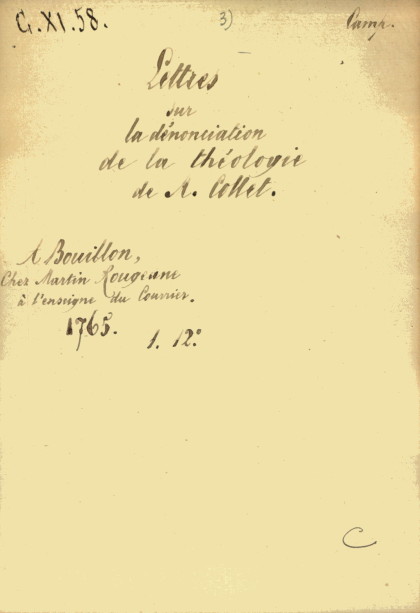 G.XI.58.
3)
Camp.
Lettres
sur
la dénonciation
de la théologie
de A. Collet.
A Bouillon,
Chez Martin Rougeune
à l'enseigne du Courrier.
1765.
1. 12°
C